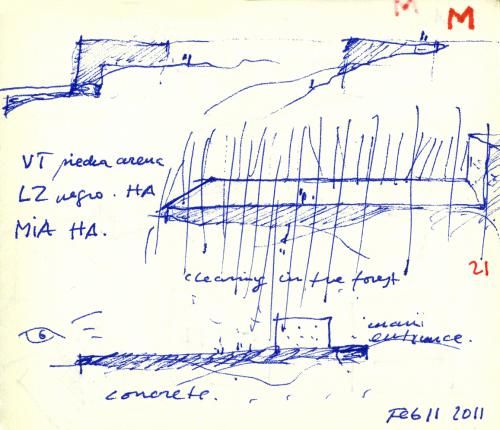 M
VT piedra arena
LZ negro. HA
MiA HA.
21
clearing in the forest
6
main
entrance.
concrete.
Feb 11 2011